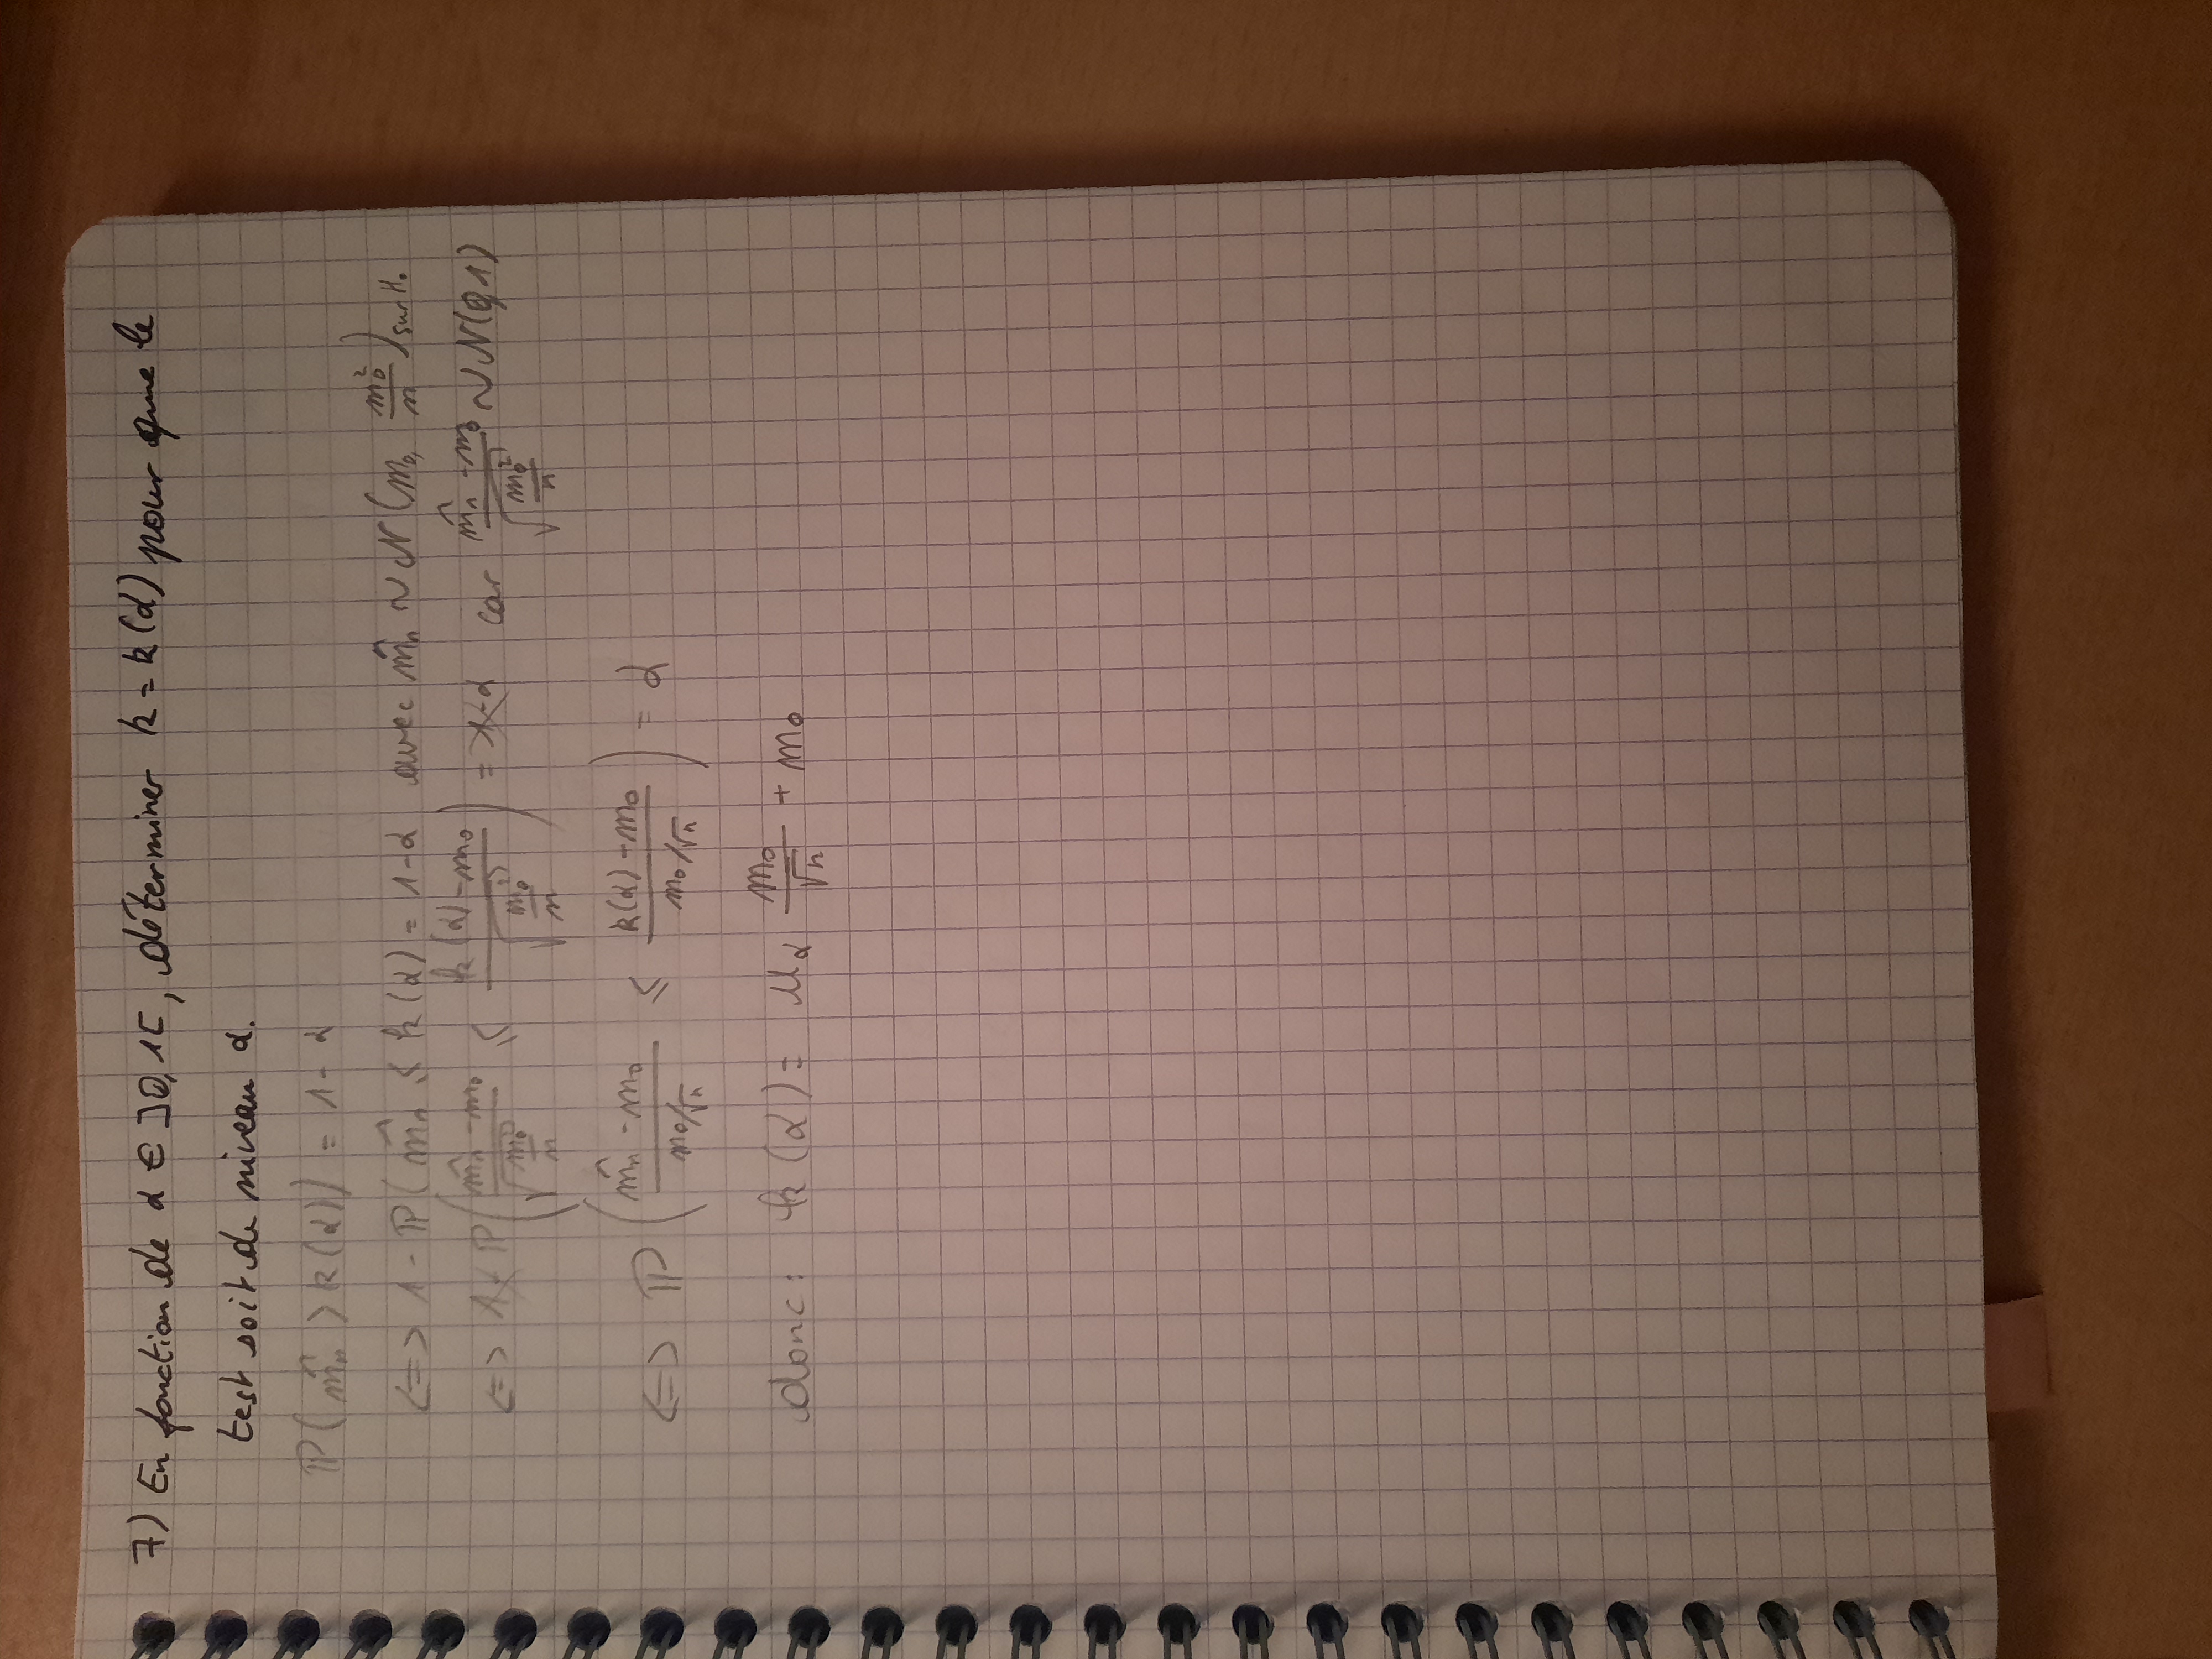 7) En fonction de α ∈ ]0,1[, déterminer k = k(α) pour que le
test soit de niveau α.
ℙ(m̂n > k(α)) = 1 - α
<=> 1 - ℙ(m̂n ≤ k(α) = 1-α avec m̂n ~ N(m₀, m₀²/n) sur H₀
<=> 1 - ℙ((m̂n - m₀)/√(m₀²/n) ≤ (k(α) - m₀)/√(m₀²/n)) = 1-α car (m̂n - m₀)/√(m₀²/n) ~ N(0,1)
<=> ℙ((m̂n - m₀)/(m₀/√n) ≤ (k(α) - m₀)/(m₀/√n)) = α
donc: k(α) = μα m₀/√n + m₀